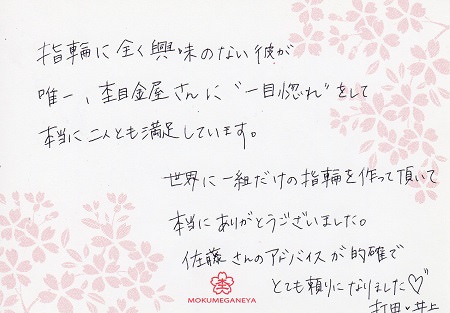 指輪に全く興味のない彼が
唯一、杢目金屋さんに“一目惚れ”をして
本当に二人とも満足しています。
世界に一組だけの指輪を作って頂いて
本当にありがとうございました。
佐藤さんのアドバイスが的確で
とても頼りになりました♡
杢
MOKUMEGANEYA
打田・井上